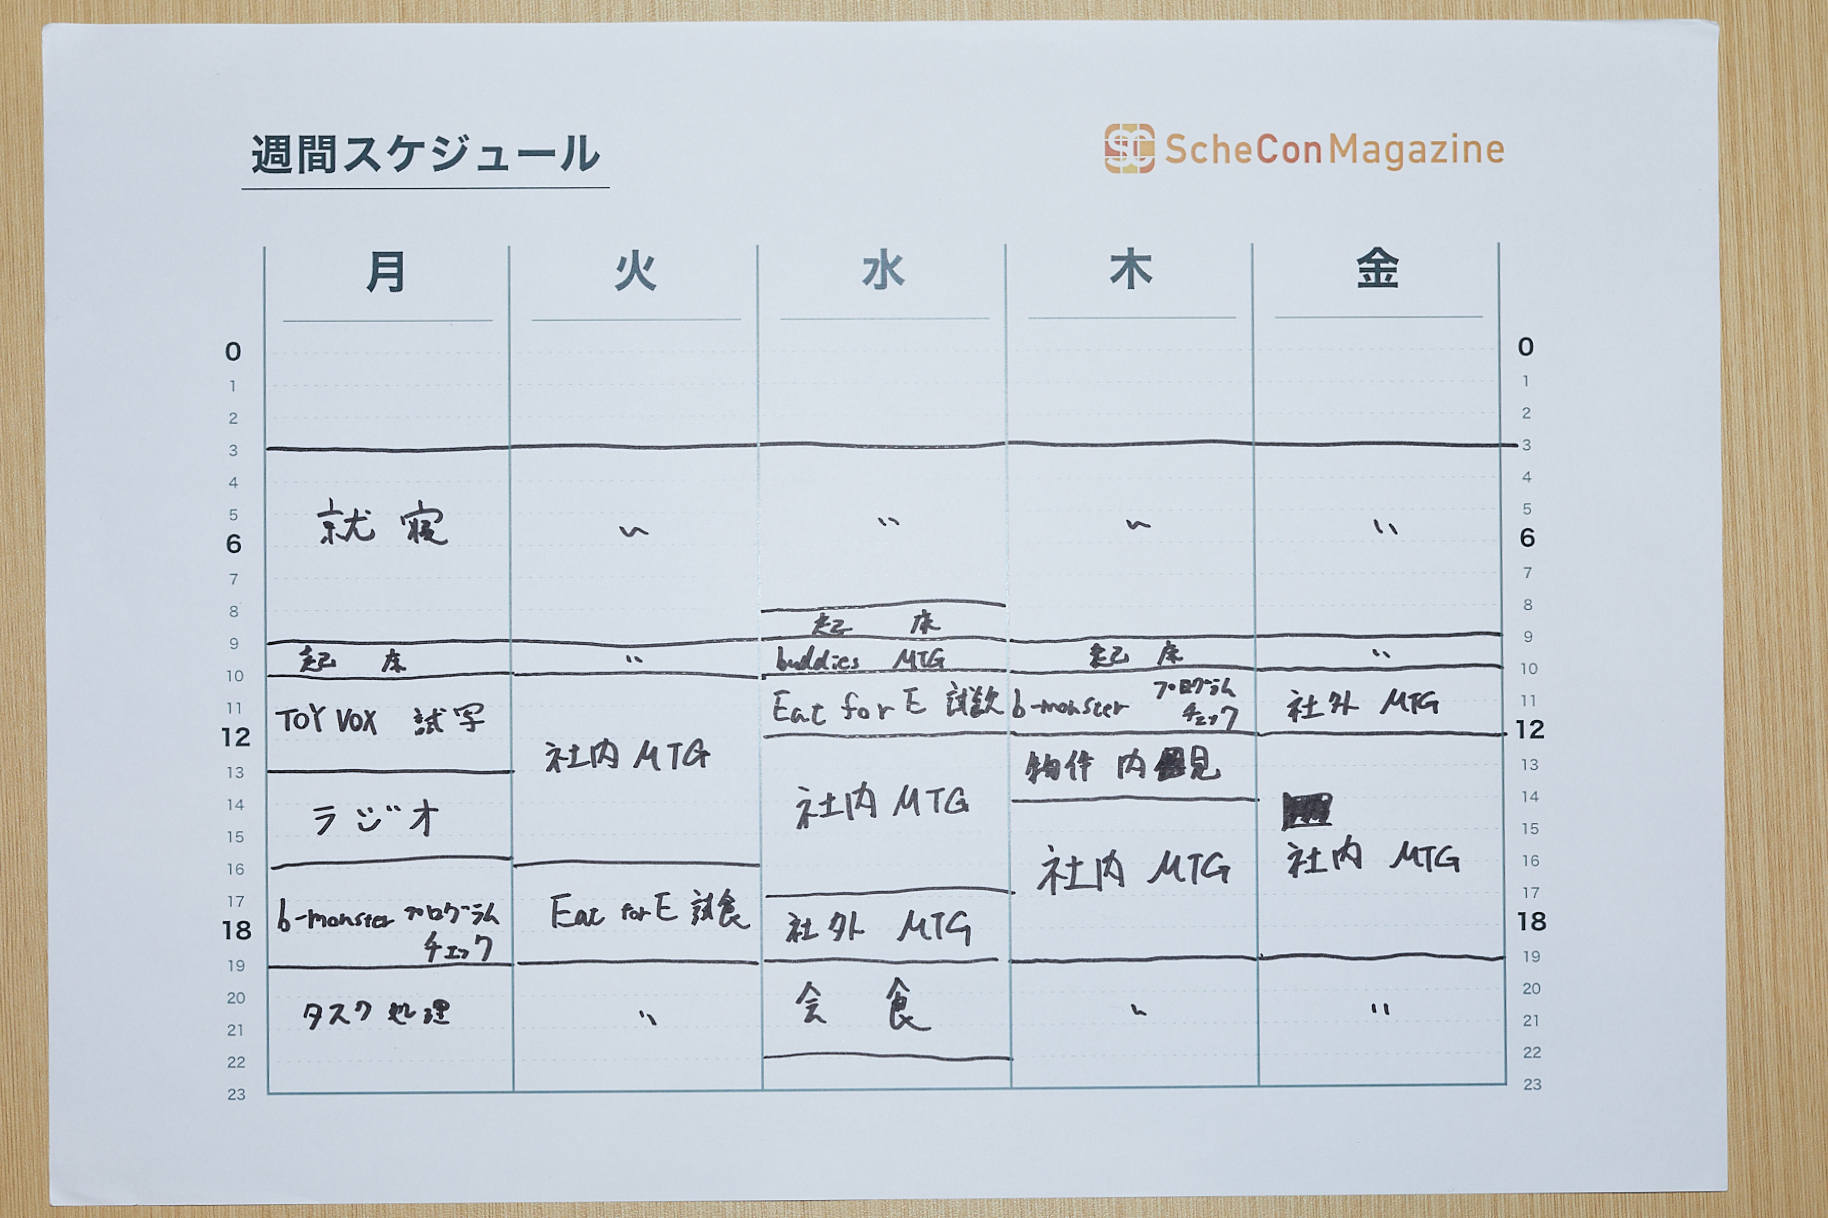 週間スケジュール
ScheConMagazine
月 火 水 木 金
0 0
1 1
2 2
3 3
4 4
5 5
就寝 〃 〃 〃 〃
6 6
7 7
8 8
起床
9 9
起床 〃 buddies MTG 起床 〃
10 10
TOY VOX 試写 Eat for E 試飲 b-monster プログラムチェック 社外 MTG
11 11
12 12
社内 MTG 物件 内見
13 13
14 14
ラジオ 社内 MTG
15 15
16 16
社内 MTG 社内 MTG
17 17
b-monster プログラム Eat for E 試食 社外 MTG
チェック
18 18
19 19
20 20
タスク処理 〃 会食 〃 〃
21 21
22 22
23 23